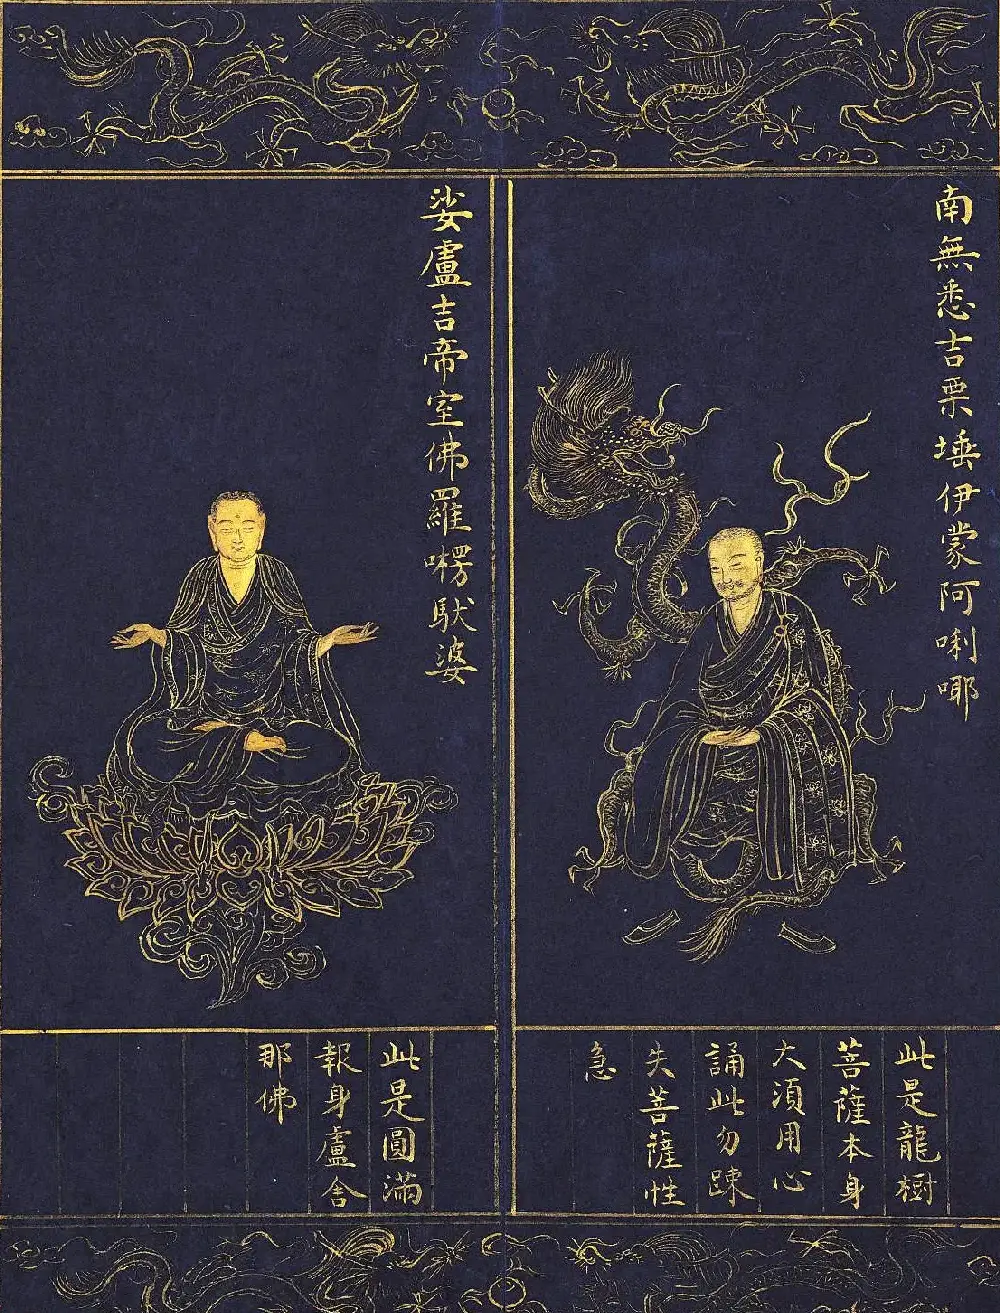 南無悉吉栗埵伊蒙阿唎㖿
此是龍樹
菩薩本身
大湏用心
誦此勿踈
失菩薩性
急
娑盧吉帝室佛羅㘄馱婆
此是圓滿
報身盧舍
那佛